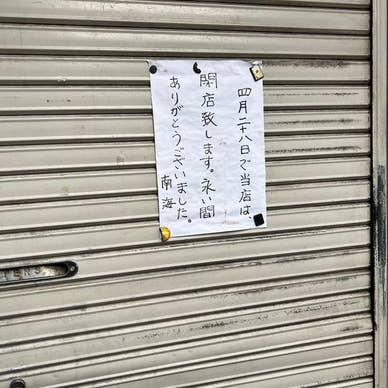 四月二十八日で当店は、
閉店致します。永い間
ありがとうございました。
南海